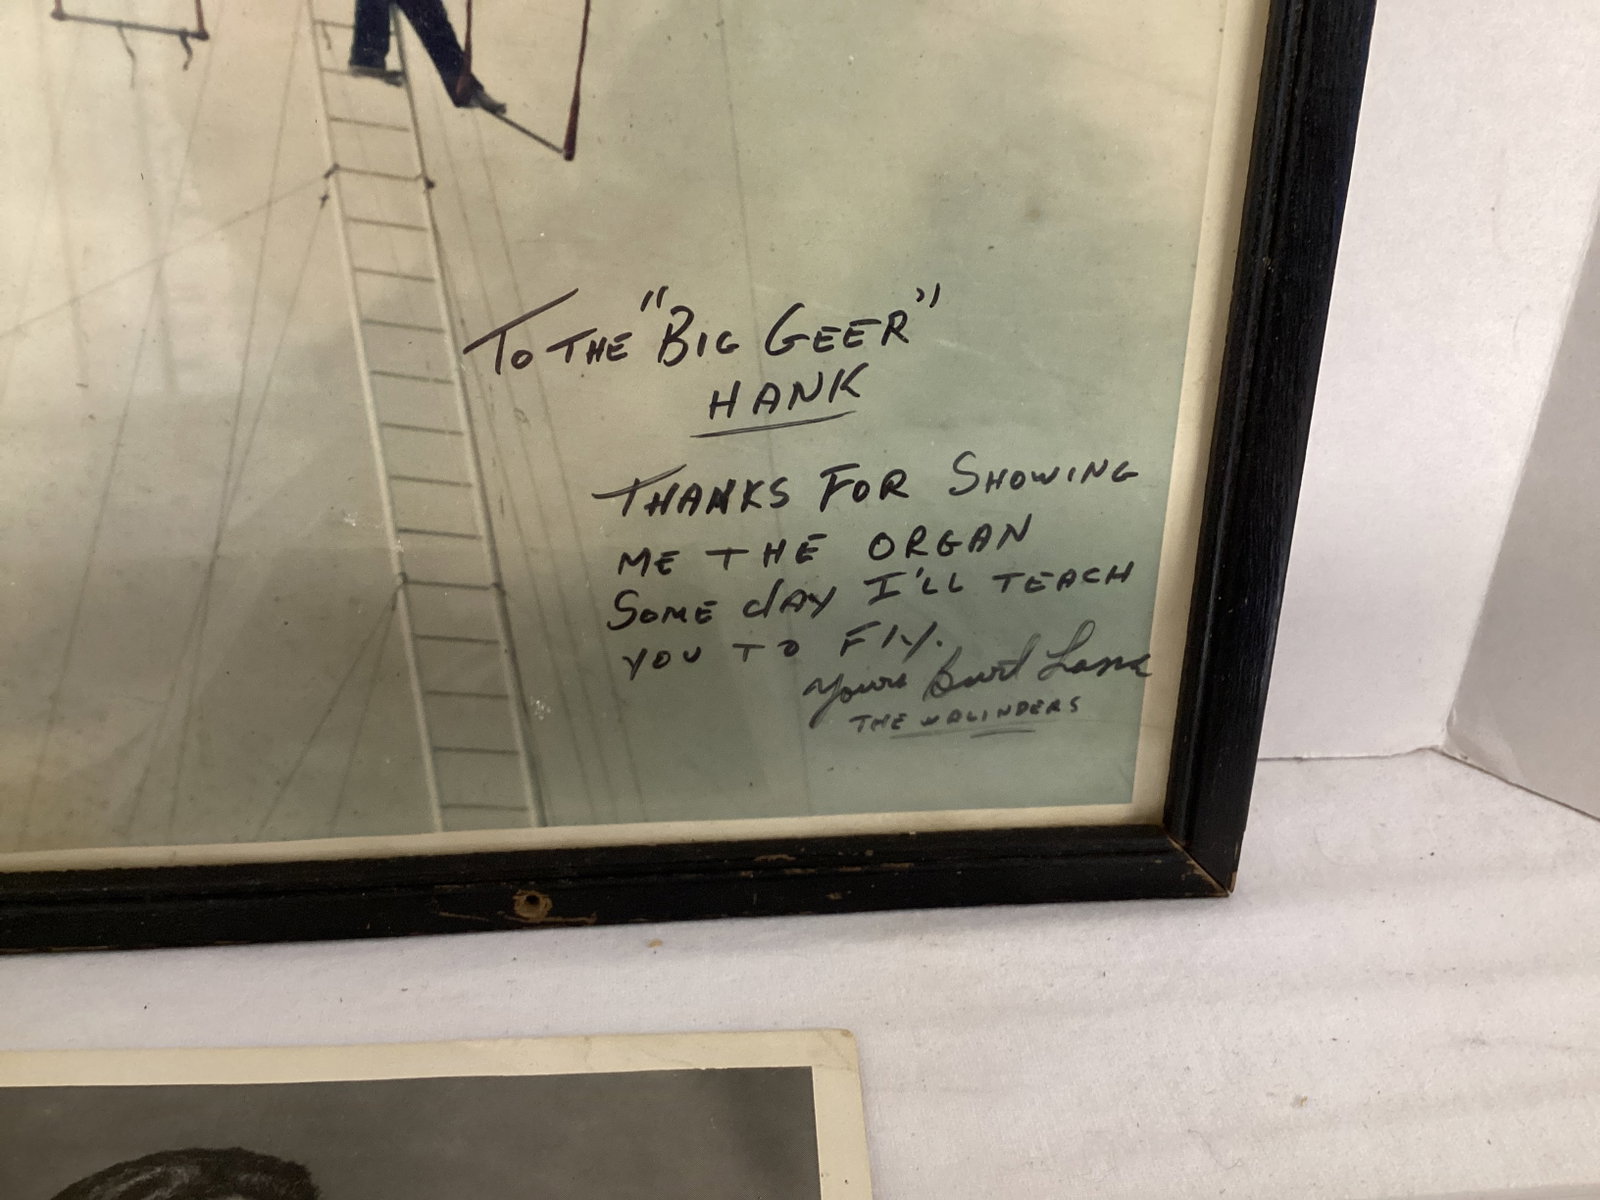 To THE "BIG GEER"
HANK
THANKS FOR SHOWING
ME THE ORGAN
SOME dAY I'LL TEACH
YOU TO FLY.
Yours Burt Lane
THE WALINDERS